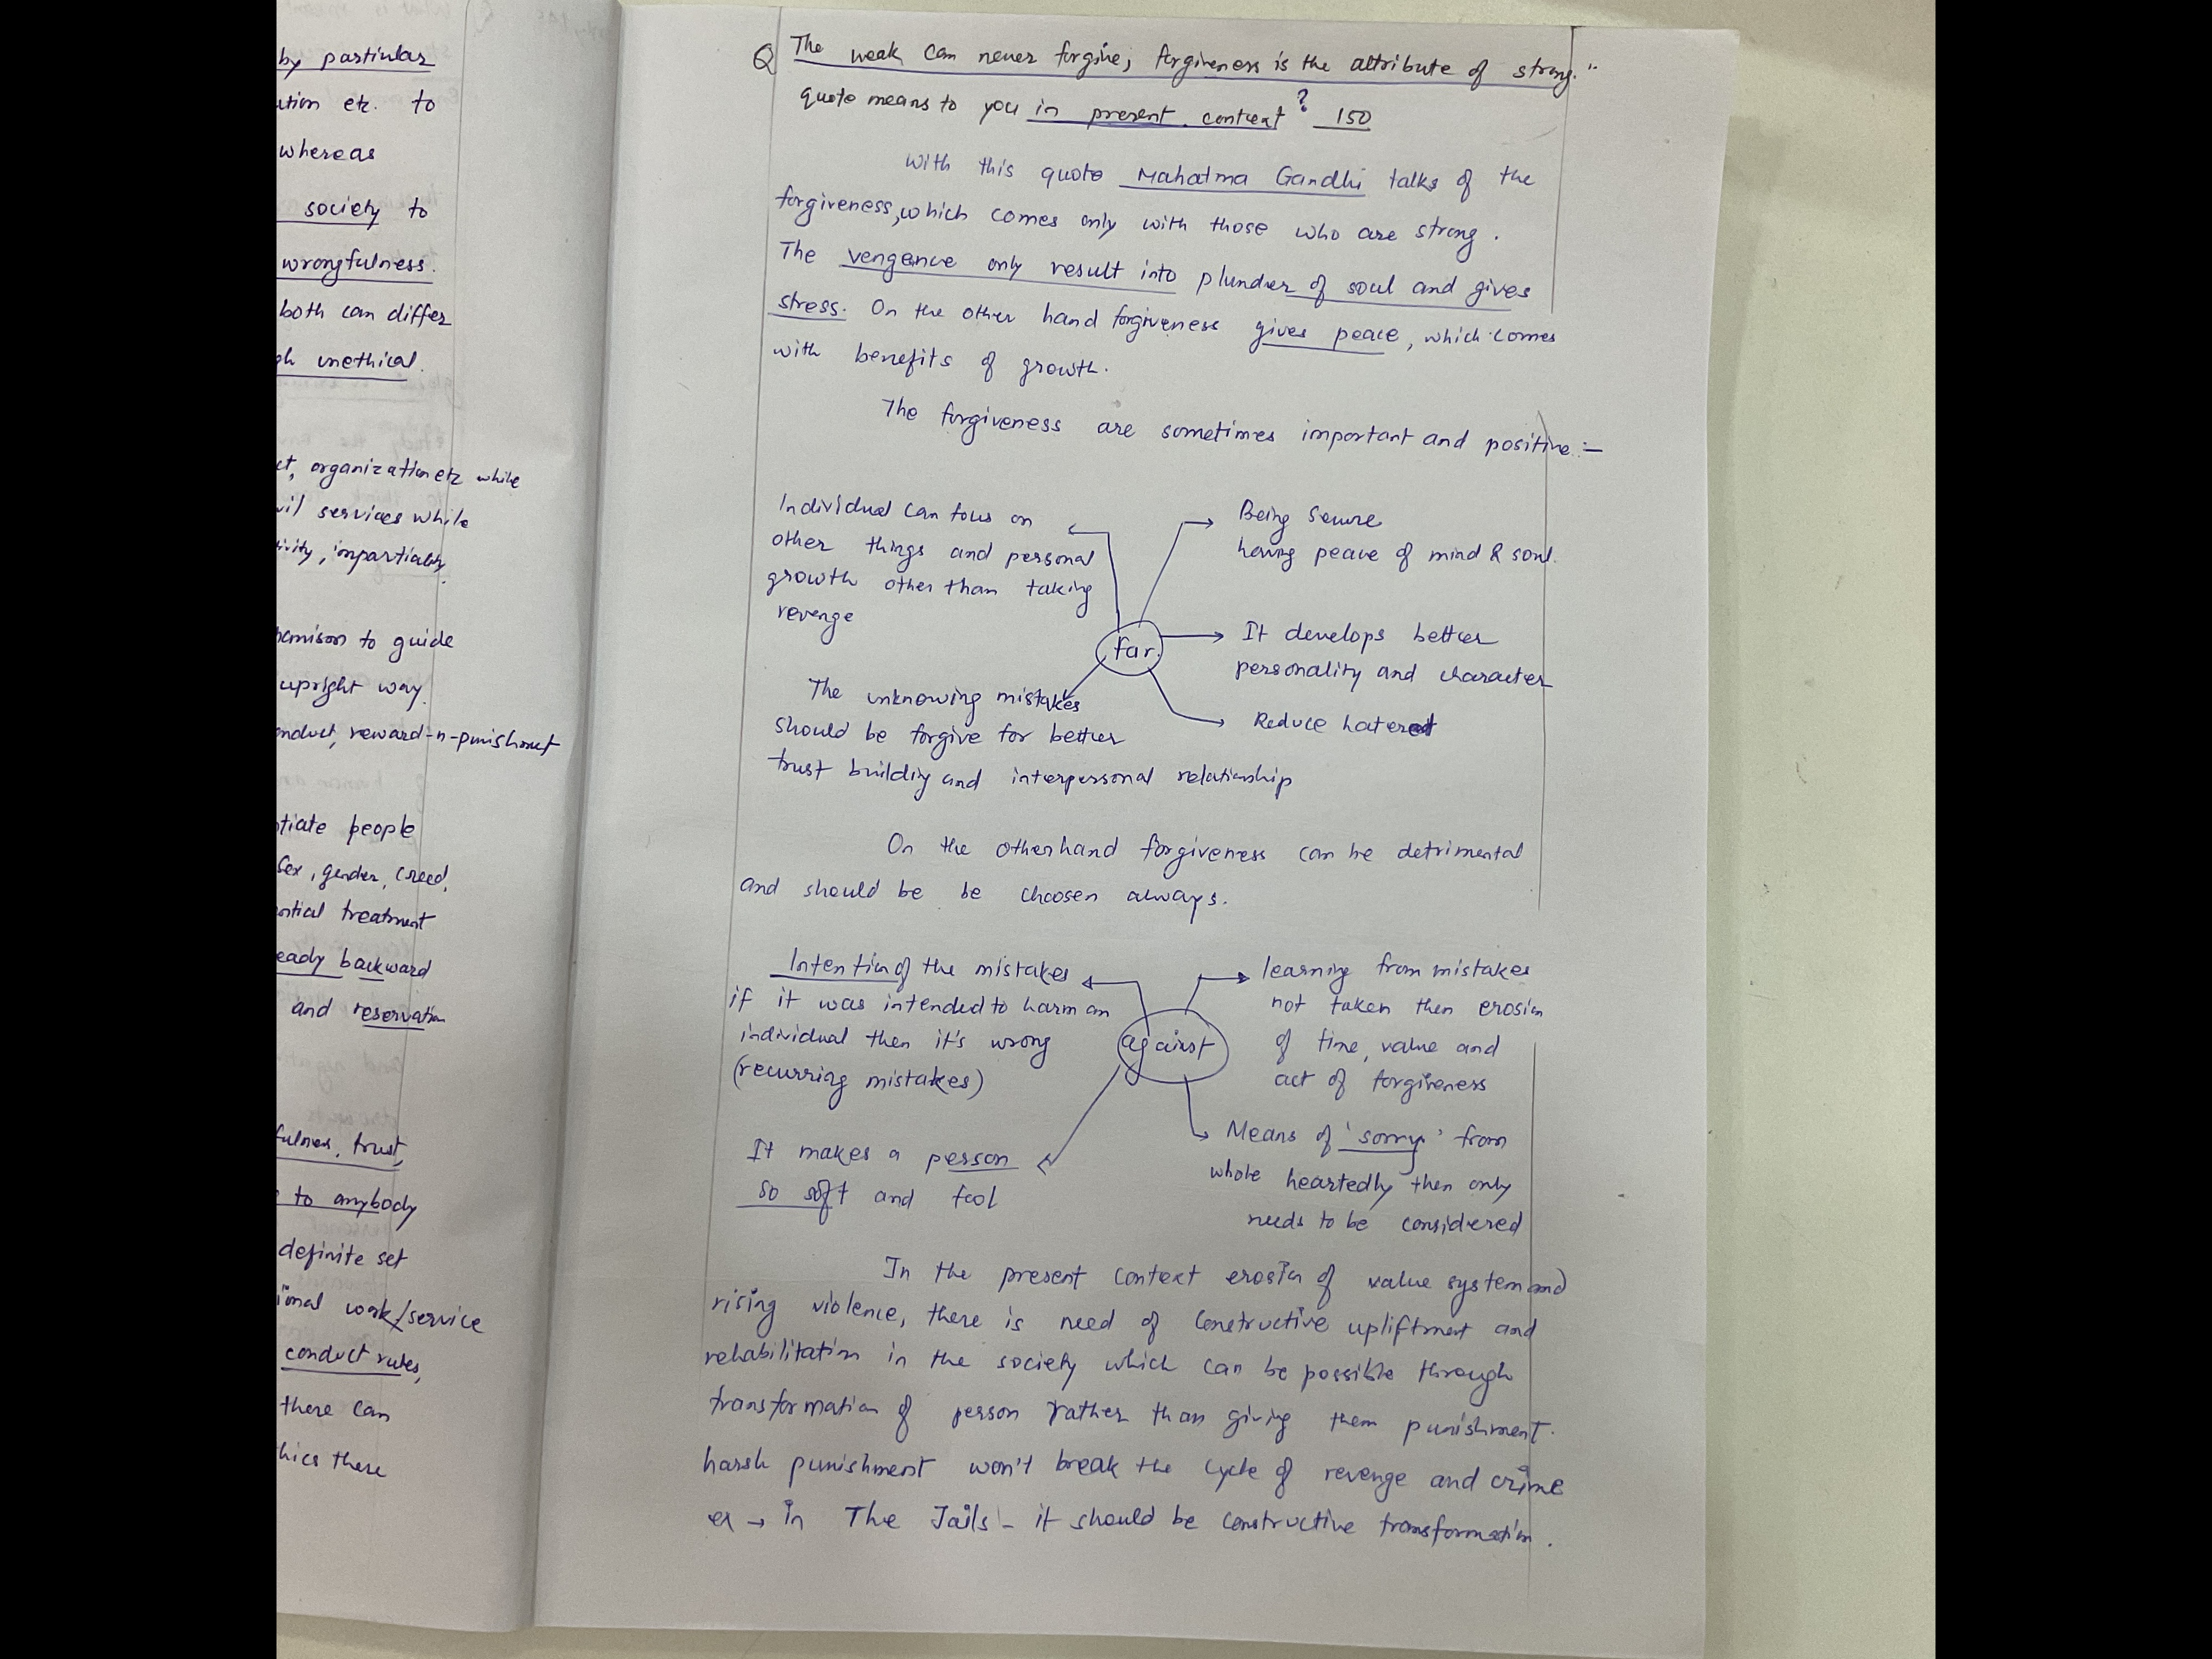 by particular
etc. to
whereas
society to
wrongfulness.
both can differ
unethical.
organization etc while
services while
impartiality.
to guide
upright way.
reward-n-punishment
people
sex, gender, creed,
treatment
backward
and reservation
trust,
to anybody
definite set
work/service
conduct rules,
there can
there
Q The weak can never forgive; forgiveness is the attribute of strong."
quote means to you in present context? 150
With this quote Mahatma Gandhi talks of the
forgiveness, which comes only with those who are strong.
The vengence only result into plunder of soul and gives
stress. On the other hand forgiveness gives peace, which comes
with benefits of growth.
The forgiveness are sometimes important and positive :-
Individual can focus on
other things and personal
growth other than taking
revenge
Being Secure
having peace of mind & soul.
for.
It develops better
personality and character
The unknowing mistakes
should be forgive for better
trust building and interpersonal relationship
Reduce hatered
On the otherhand forgiveness can be detrimental
and should be be choosen always.
Intention of the mistakes
if it was intended to harm an
individual then it's wrong
(recurring mistakes)
learning from mistakes
not taken then erosion
of time, value and
act of forgiveness
against
It makes a person
so soft and fool
Means of 'sorry' from
whole heartedly then only
needs to be considered
In the present context erosion of value system and
rising violence, there is need of constructive upliftment and
rehabilitation in the society which can be possible through
transformation of person rather than giving them punishment.
harsh punishment won't break the cycle of revenge and crime
ex → in The Jails - it should be constructive transformation.